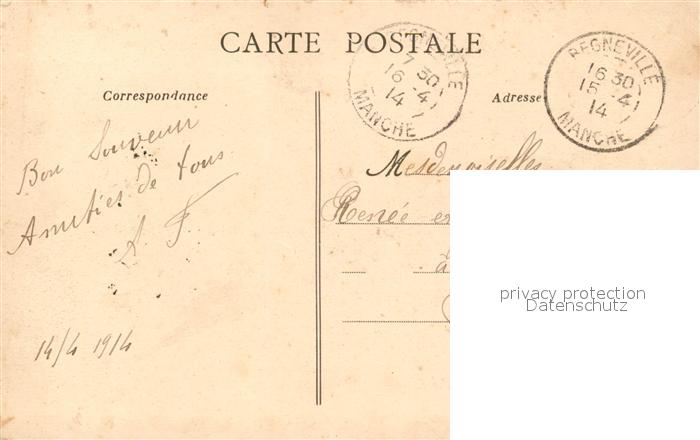 CARTE POSTALE
Correspondance
Bon Souvenir
Amitiés de tous
A. F.
14/4 1914
REGNEVILLE
7 30
16 -4
14
MANCHE
REGNEVILLE
16 30
15 -4
14
MANCHE
Adresse
Mesdemoiselles
Renée et
à
privacy protection
Datenschutz